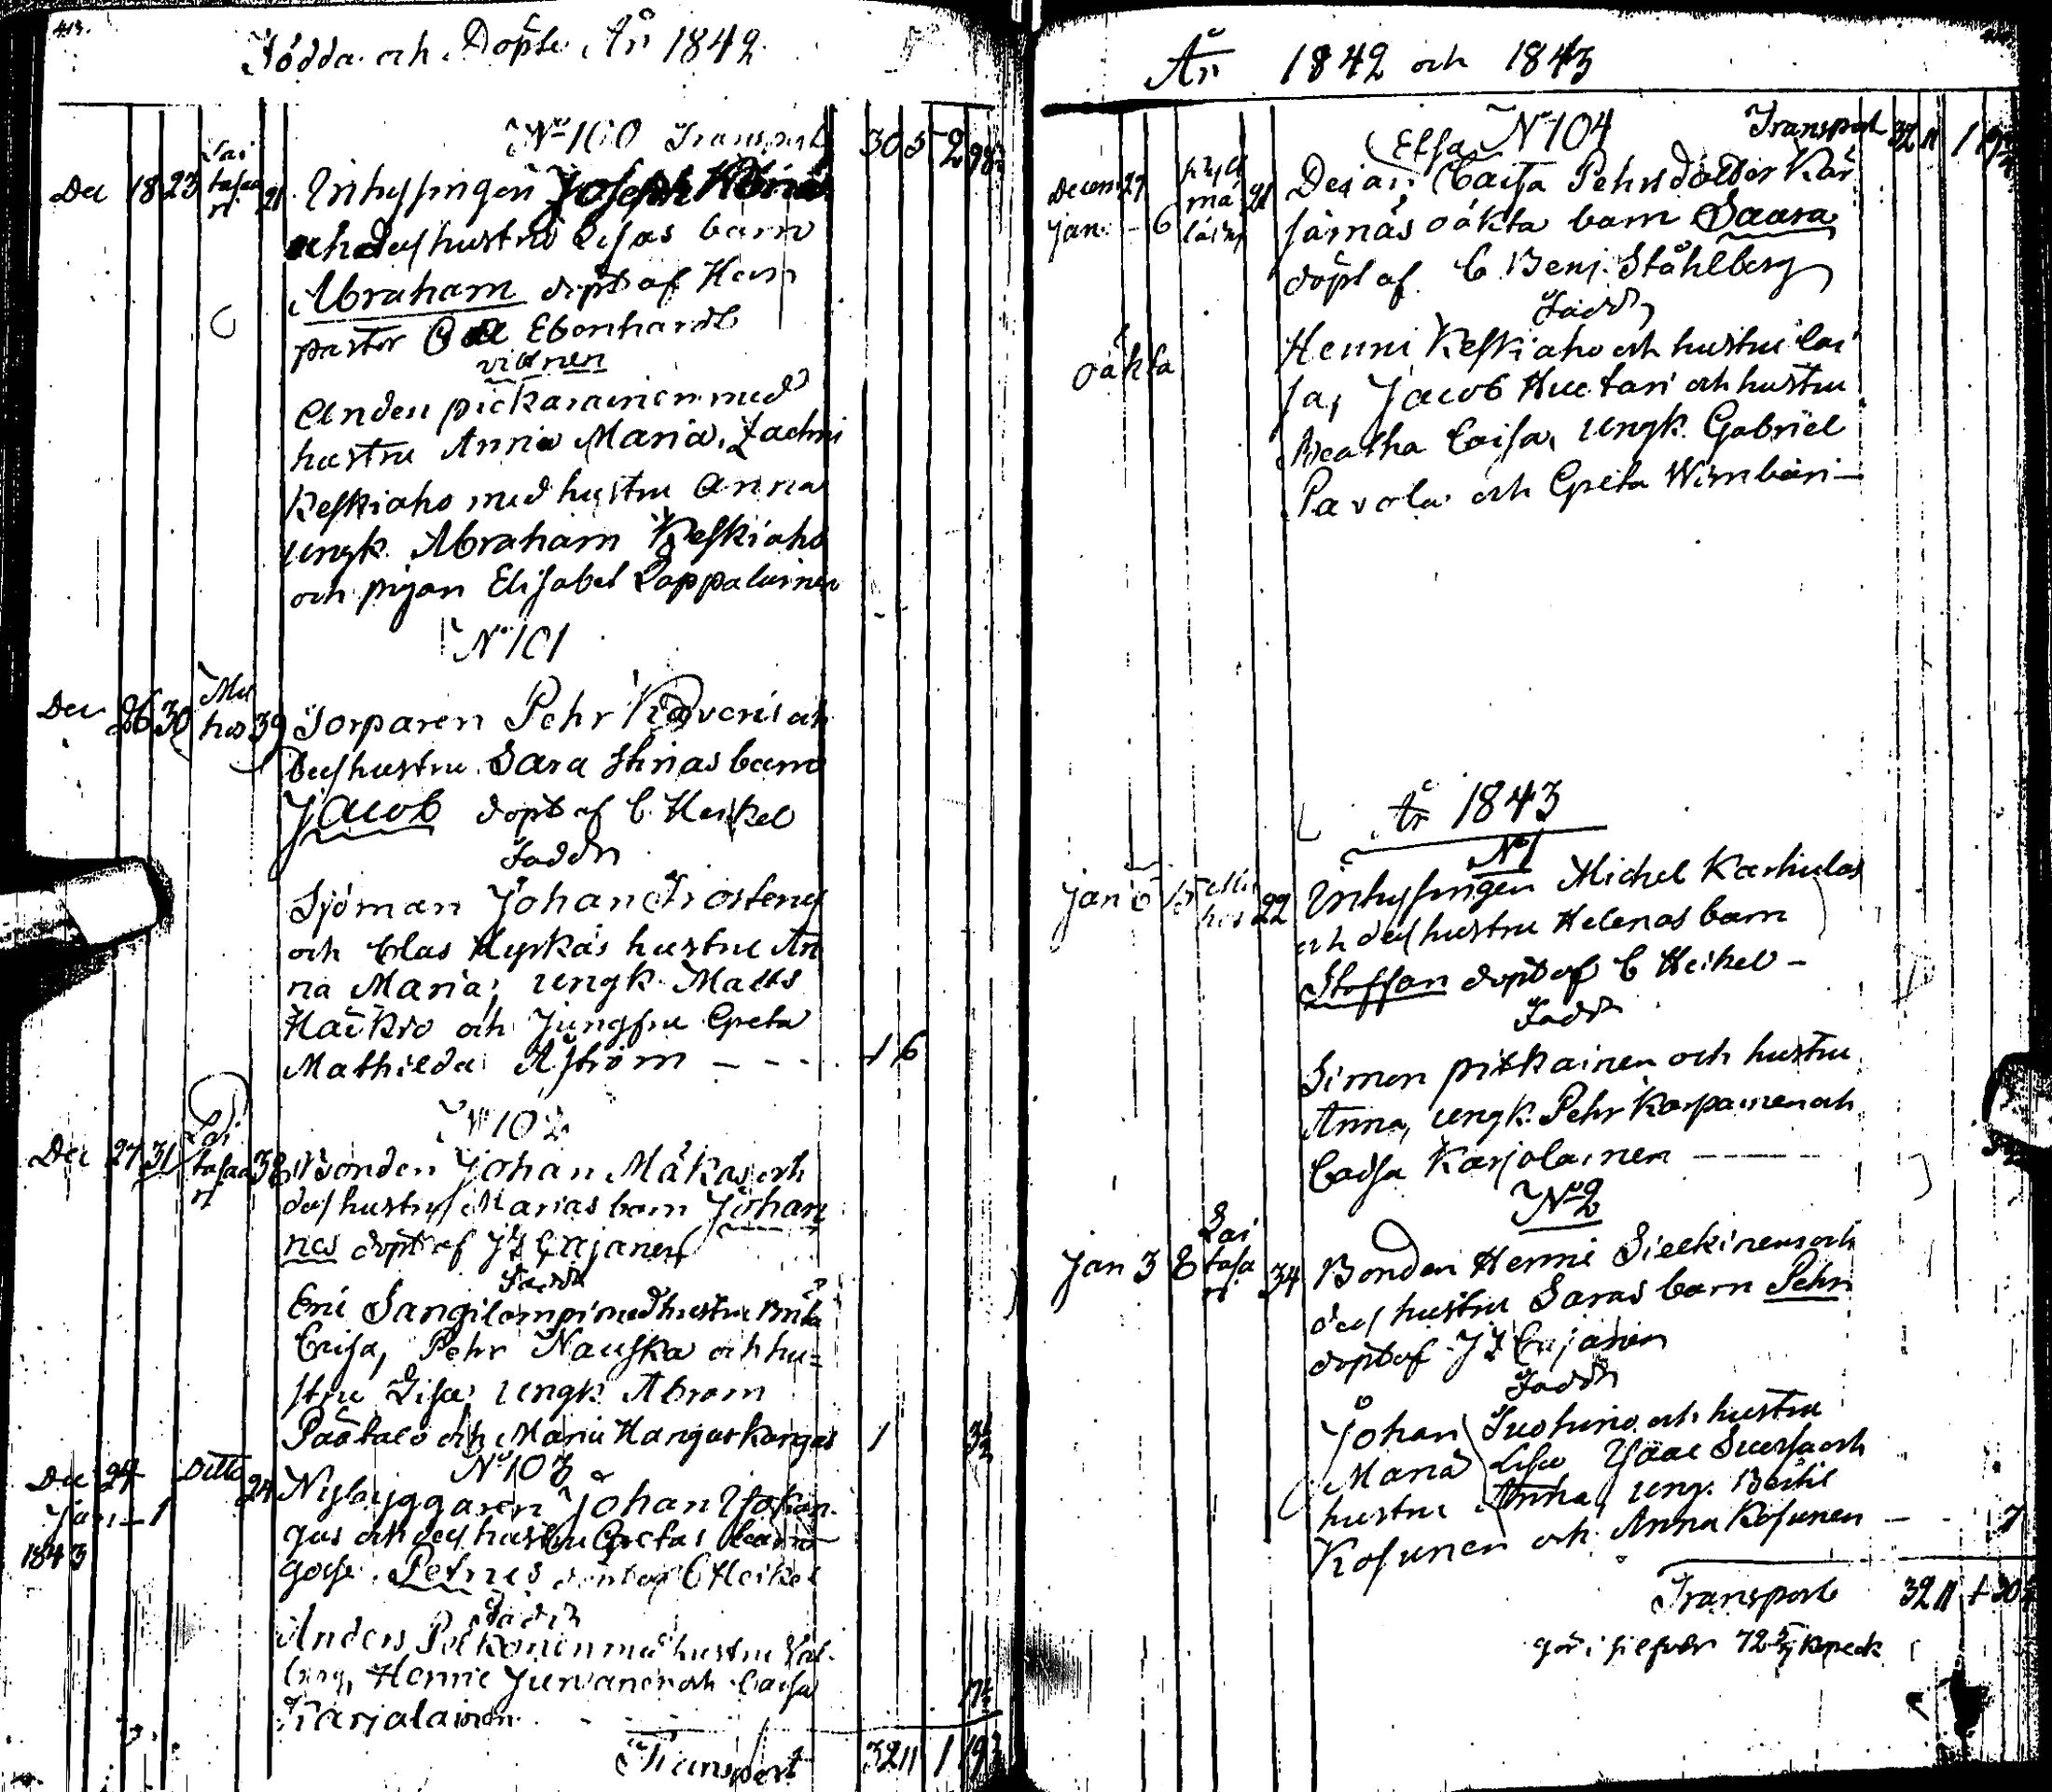 413.
Födda och Döpte År 1842
No 100 Transport 30 5 2 98
Dec 18 23 Lai
tasaa
ri 21. Inhysingen Joseph
och dess hustrus Lisas barn
Abraham döpt af Herr
pastor Eberhardt
vittnen
Anders pickarainen med
hustru Anna Maria, Zachri
Keskiaho med hustru Anna
ungk. Abraham Keskiaho
och pigan Elisabet Lappalainen
No 101
Dec 26 30 Mu
hos 39 Torparen Pehr Koveris och
dess hustru Sara Stinas barn
Jacob döpt af C. Heikel
Faddr
Sjöman Johan Frosteny
och Clas Kyrkäs hustru An
na Maria; ungk. Matts
Häikiö och Jungfru Greta
Mathilda Åström - - - . 1 6
No 102
Dec 27 31 Lai
tasaa
ri 38 Bonden Johan Mäkas och
dess hustrus Marias barn Johan
nes döpt af JF Cajanen
Faddr
Eric Sangilampi med hustru Brita
Caisa, Pehr Nauska och hu=
stru Lisa, ungk Abram
Päätalo och Maria Hangaskangas 1
No 103
Dec 24 Ditto 24 Nybyggaren Johan
Jan - 1
1843 gas och dess hustru Gretas barn
gosse Petrus döpt af C Heikel
Faddr
Anders Pelkonen med hustru
Henric Jurvanen och Caisa
Karjalainen
Transport 32 11 1 19
År 1842 och 1843
Elsa No 104 Transport 32 11 1 19
Decem 27
Jan. - 6 21 Dejan Caisa Pehrsdotter Kär
sämäs oäkta barn Saara
döpt af C. Benj. Ståhlberg
Faddr
oäkta
Henric Keskiaho och hustru Cai
sa, Jacob Huctari och hustru
Beatha Caisa, ungk. Gabriel
Pavola och Greta Wimbäri -
År 1843
No 1
Jan 6 15 Mu
hos 22 Inhysingen Michel Karhulas
och dess hustru Helenas barn
Staffan döpt af C Heikel -
Faddr
Simon pitkainen och hustru
Anna, ungk. Pehr Karpainen och
Caisa Karjolainen - - - -
No 2
Jan 3 8 Lai
tasa
ri 34 Bonden Henric Sieckinens och
dess hustru Saras barn Pehr
döpt af JF Cajanen
Faddr
Johan Tuohino och hustru
Maria Lisa Isaac Suersa och
hustru Anna, ung. Bertil
Kosunen och Anna Kosunen - - 7
Transport 32 11 1
gör i silfver 72 kopeck